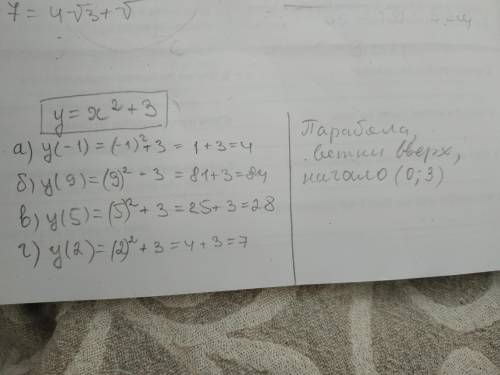 7 = 4√3 + √
y = x² + 3
а) y(-1) = (-1)² + 3 = 1 + 3 = 4
б) y(9) = (9)² + 3 = 81 + 3 = 84
в) y(5) = (5)² + 3 = 25 + 3 = 28
г) y(2) = (2)² + 3 = 4 + 3 = 7
Парабола,
ветки вверх,
начало (0; 3)